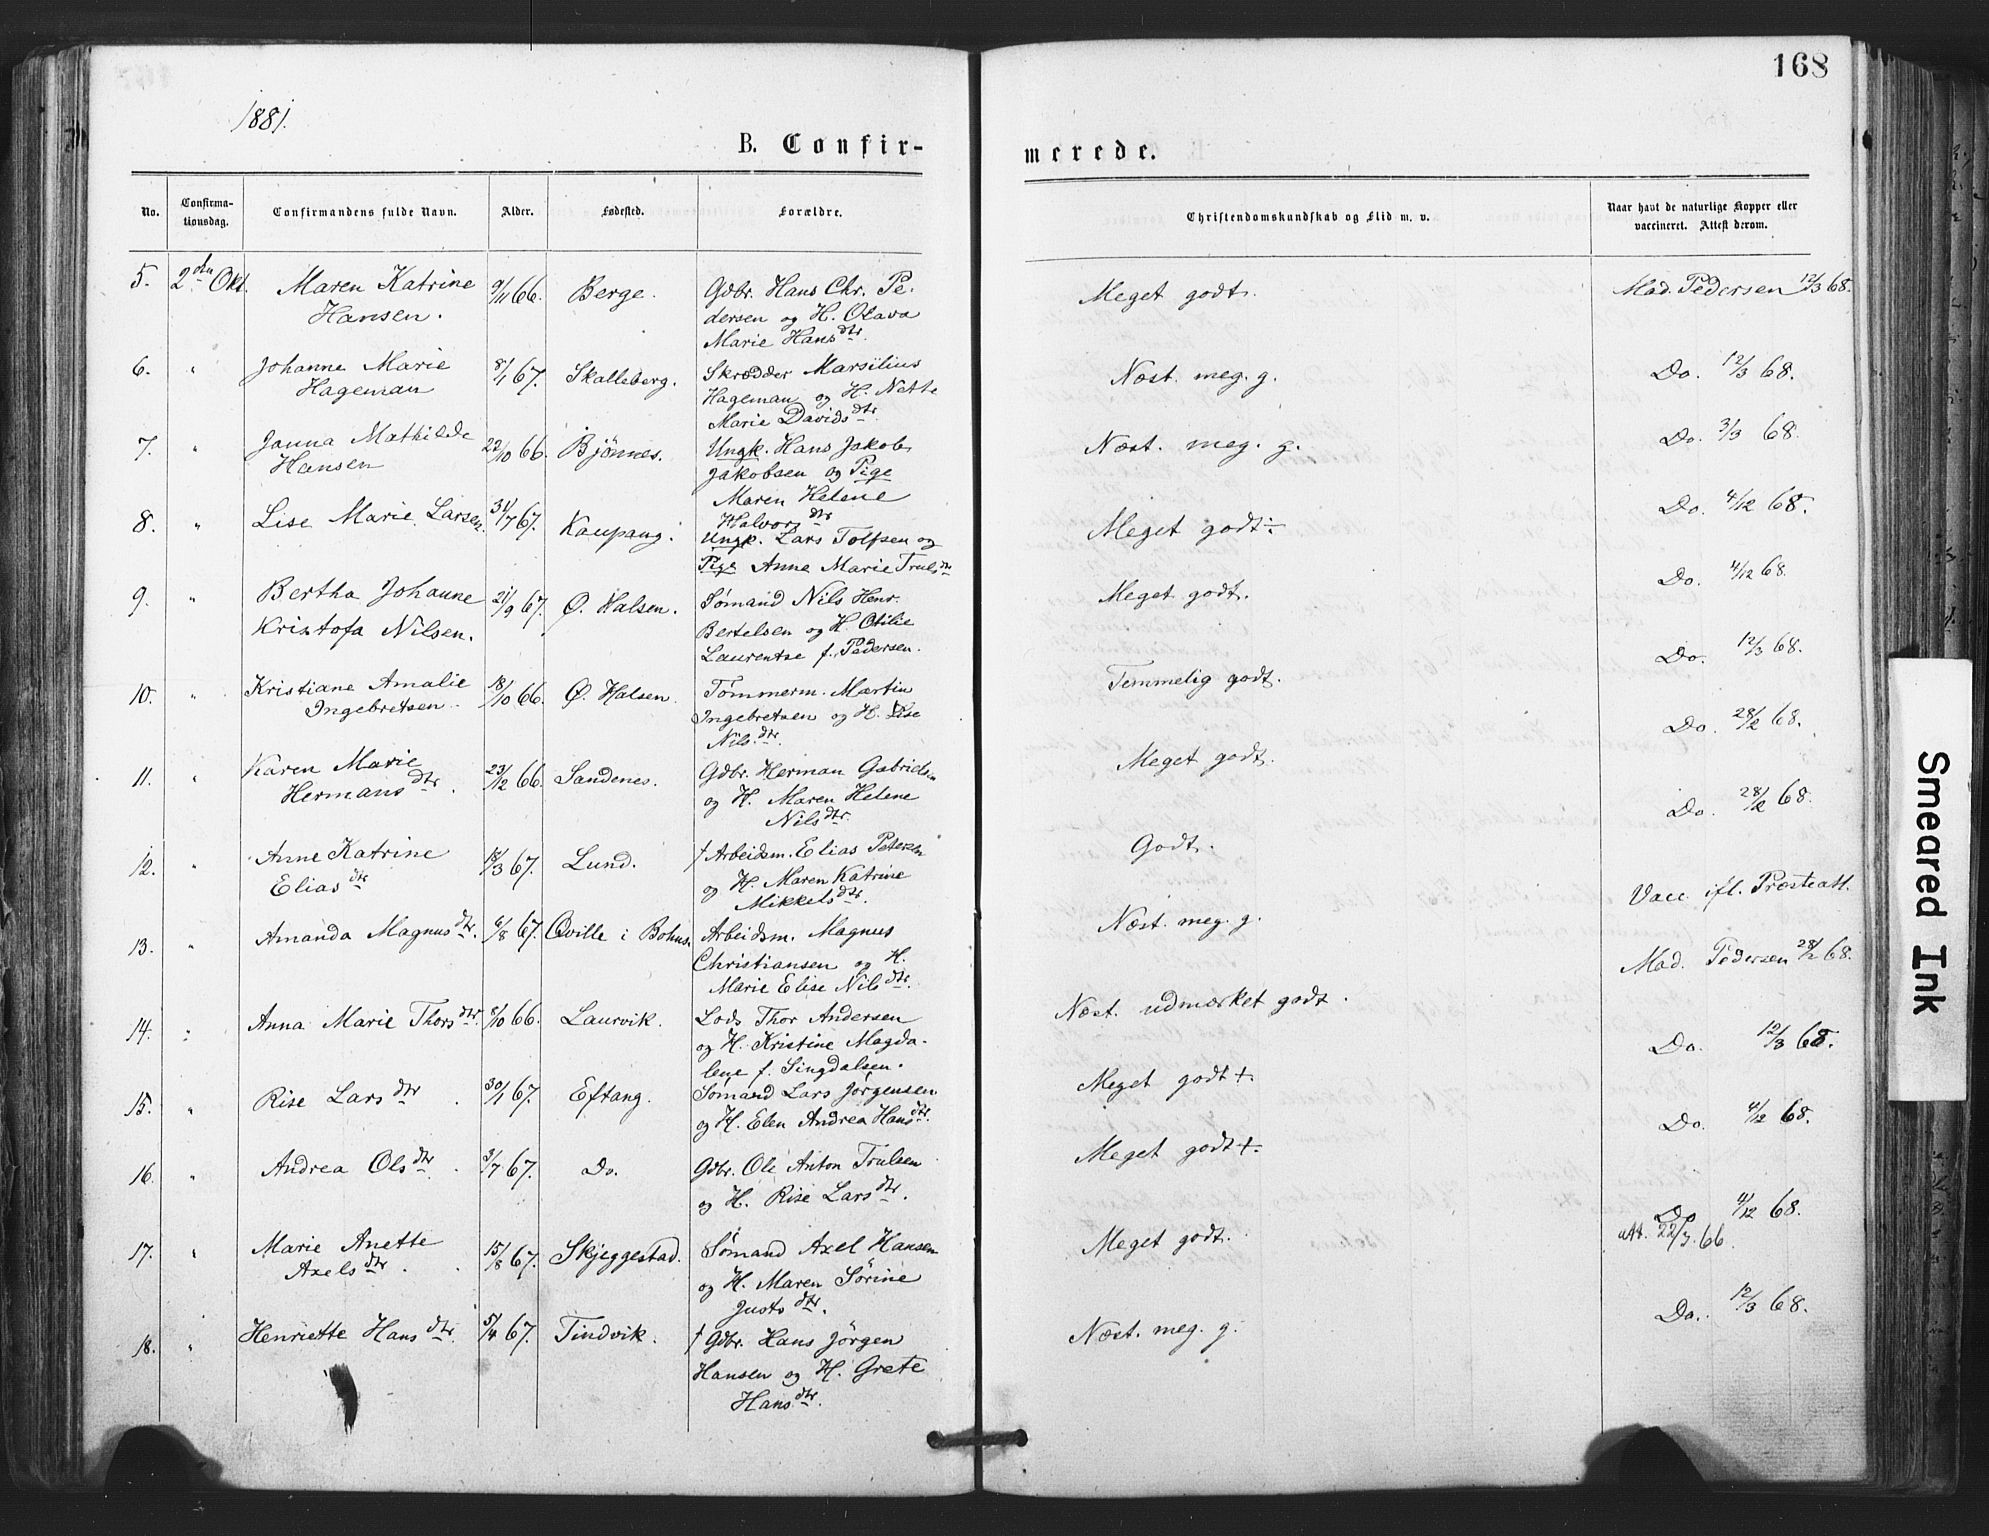 168
1881.
B. Confir-
merede.
No.
Confirma-
tionsdag.
Confirmandens fulde Navn.
Alder.
Fødested.
Forældre.
Christendomskundskab og Flid m. v.
Naar havt de naturlige Kopper eller
vaccineret. Attest derom.
5. 2den Okt. Maren Katrine 9/11 66. Berge. Gdbr. Hans Chr. Pe- Meget godt. Mad. Pedersen 12/3 68.
Hansen. dersen og H. Olava
Marie Hansdtr.
6. " Johanne Marie 8/1 67. Skalleberg. Skrædder Marsilius Næst. meg. g. Do. 12/3 68.
Hageman Hageman og H. Nette
Marie Davidsdtr.
7. " Janna Mathilde 22/10 66. Bjönnes. Ungk. Hans Jakob Næst. meg. g. Do. 3/3 68.
Hansen Jakobsen og Pige
Maren Helene
Halvorsdtr
8. " Lise Marie Larsen. 31/7 67. Kaupang. Ungk. Lars Tolfsen og Meget godt÷ Do. 4/12 68.
Pige Anne Marie Trulsdtr
9. " Bertha Johanne 21/9 67. Ø. Halsen. Sømand Nils Henr. Meget godt. Do. 4/12 68.
Kristofa Nilsen. Bertelsen og H. Otilie
Laurentse f. Pedersen.
10. " Kristiane Amalie 18/10 66. Ø. Halsen. Tömmerm. Martin Temmelig godt. Do. 12/3 68.
Ingebretsen. Ingebretsen og H. Lise
Nilsdtr.
11. " Karen Marie 23/12 66. Sandenes. Gdbr. Herman Gabrielsen Meget godt. Do. 28/2 68.
Hermansdtr. og H. Maren Helene
Nilsdtr.
12. " Anne Katrine /3 67. Lund. † Arbeidsm. Elias Petersen Godt. Do. 28/2 68.
Eliasdtr og H. Maren Katrine
Mikkelsdtr.
13. " Amanda Magnusdtr. 6/8 67. Qville i Bohus. Arbeidsm. Magnus Næst. meg. g. Vacc. ifl. Præsteatt.
Christiansen og H.
Marie Elise Nilsdtr.
14. " Anna Marie Thorsdtr. 8/10 66. Laurvik. Lods Thor Andersen Næst. udmærket godt. Mad. Pedersen 28/2 68.
og H. Kristine Magda-
lene f. Singdalsen.
15. " Rise Larsdtr. 30/1 67. Eftang. Sømand Lars Jørgensen Meget godt +. Do. 12/3 68.
og H. Elen Andrea Hansdtr.
16. " Andrea Olsdtr. 3/7 67. Do. Gdbr. Ole Anton Trulsen Meget godt +. Do. 4/12 68.
og H. Rise Larsdtr.
17. " Marie Anette 15/8 67. Skjeggestad. Sømand Axel Hansen Meget godt. Do 4/12 68.
Axelsdtr. og H. Maren Sörine
Justsdtr.
22/3. 66.
18. " Henriette Hansdtr. 5/4 67. Tindvik. † Gdbr. Hans Jörgen Næst. meg. g. Do. 12/3 68.
Hansen og H. Grete
Hansdtr.
Smeared Ink